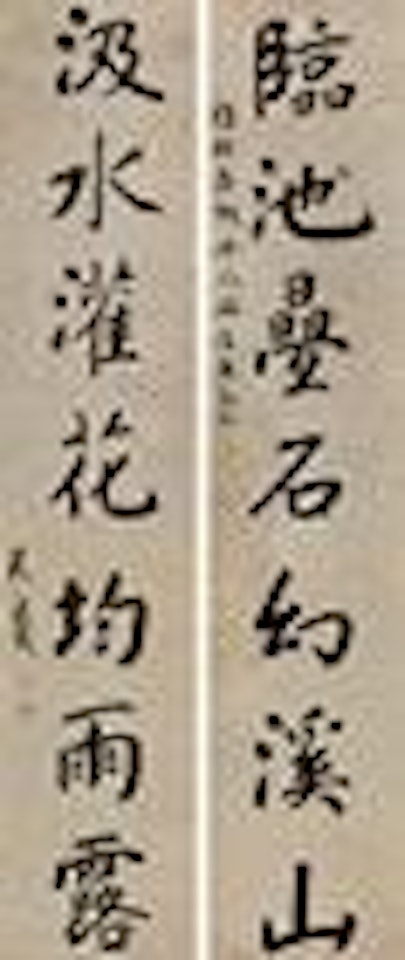 臨池疊石幻溪山
汲水灌花均雨露